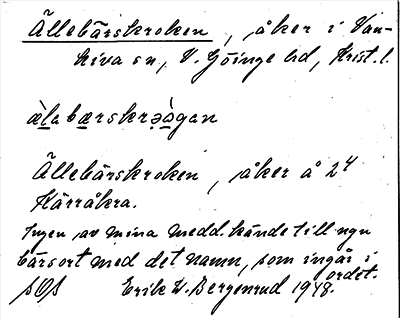 Ällebärskroken, åker i Van-
kiva sn, V. Göinge hd, Krist. l.
æ̀lebærskrəògan
Ällebärskroken, åker å 2⁴
Kärråkra.
Ingen av mina medd. kände till ngn
bärsort med det namn, som ingår i
ordet.
Erik W. Bergenrud 1948.